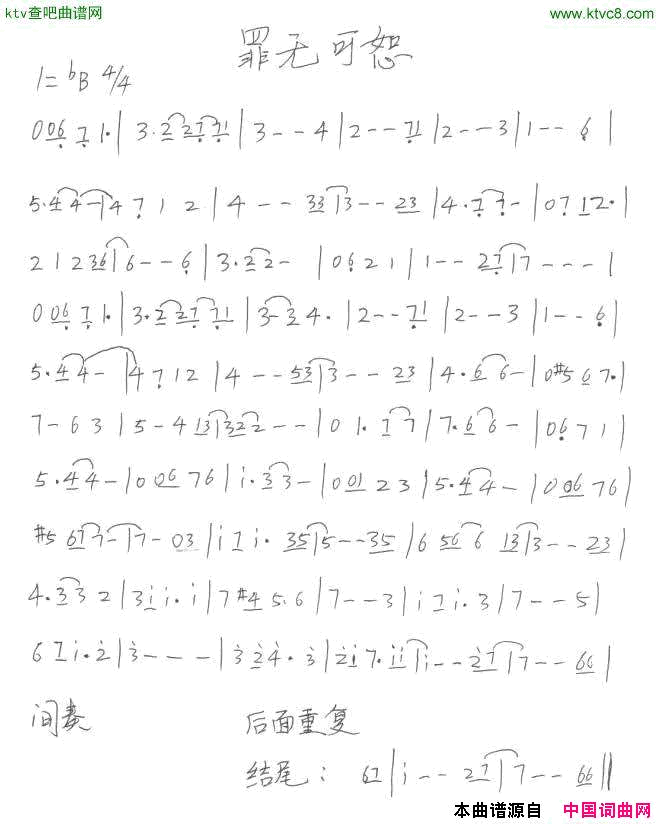 ktv查吧曲谱网 www.ktvc8.com
罪无可恕
1=bB 4/4
0 06 7 1·| 3·2 27 71 | 3 - - 4 | 2 - - 71 | 2 - - 3 | 1 - - 6 |
5·4 4 - | 4 7 1 2 | 4 - - 33 | 3 - - 23 | 4·7 7 - | 0 7 12·|
2 1 2 36 | 6 - - 6 | 3·2 2 - | 0 6 2 1 | 1 - - 27 | 7 - - - |
0 06 7 1·| 3·2 27 71 | 3 - 3 4·| 2 - - 71 | 2 - - 3 | 1 - - 6 |
5·4 4 - | 4 7 1 2 | 4 - - 53 | 3 - - 23 | 4·6 6 - | 0 #5 6 7·|
7 - 6 3 | 5 - 4 13 | 322 - - | 0 1·7 7 | 7·6 6 - | 0 6 7 1 |
5·4 4 - | 0 06 76 | i·3 3 - | 0 01 2 3 | 5·4 4 - | 0 06 76 |
#5 67 7 - | 7 - 03 | i 7 i·35 | 5 - - 35 | 6 56 6 13 | 3 - - 23 |
4·3 3 2 | 3 i i·i | 7 #4 5·6 | 7 - - 3 | i 7 i·3 | 7 - - 5 |
6 7 i·2 | 3 - - - | 3 2 4·3 | 2i 7·ii | i - - 27 | 7 - - 66 |
间奏 后面重复
结尾： 67 | i - - 27 | 7 - - 66 ||
本曲谱源自 中国词曲网